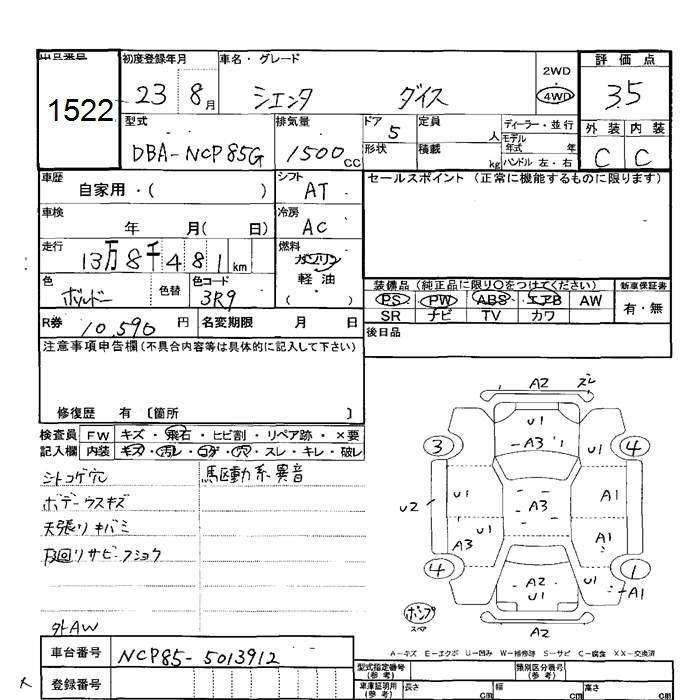 出品番号 初度登録年月 車名・グレード 2WD 評価点
1522 23 8月 シエンタ ダイス 4WD 3.5
型式 排気量 ドア 5 定員 人 ディーラー・並行 外装 内装
DBA-NCP85G 1500cc 形状 積載 kg モデル年式 年 ハンドル 左・右 C C
車歴 自家用・( ) シフト AT セールスポイント(正常に機能するものに限ります)
車検 年 月( 日) 冷房 AC
走行 13万8千481km 燃料 ガソリン
軽油
( )
色 ボルドー 色替 色コード 3R9 装備品(純正品に限り○をつけてください) 新車保証書
PS PW ABS エアB AW 有・無
SR ナビ TV カワ
R券 10,590円 名変期限 月 日 後日品
注意事項申告欄(不具合内容等は具体的に記入して下さい)
修復歴 有 〔箇所 〕
検査員 FW キズ・飛石・ヒビ割・リペア跡・×要
記入欄 内装 キズ・汚レ・コゲ・穴・スレ・キレ・破レ
シトコゲ穴 駆動系異音
ボデーウスキズ
天張りキバミ
下回りサビ・フショク
外AW
A2 ズレ
U1
3 A3 1 4
U1 U1 A1
U2 A3
A3 U1 A1
4 A2 U1 1
U1 A1
ポンプ
スペア
A2
A-キズ E-エクボ U-凹み W-補修跡 S-サビ C-腐食 XX-交換済
車台番号 NCP85-5013912 型式指定番号(参考) 類別区分番号(参考)
登録番号 車庫証明用(参考) 長さ cm 幅 cm 高さ cm